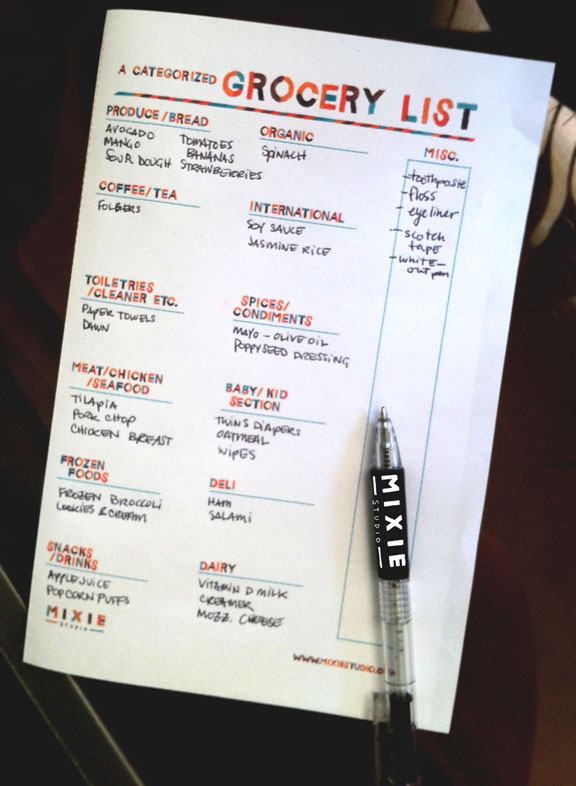 A CATEGORIZED GROCERY LIST
PRODUCE/BREAD
AVOCADO
MANGO
SOUR DOUGH
TOMATOES
BANANAS
STRAWBERRIES
ORGANIC
SPINACH
MISC.
- toothpaste
- floss
- eyeliner
- scotch
tape
- white-
out pen
COFFEE/TEA
FOLGERS
INTERNATIONAL
SOY SAUCE
JASMINE RICE
TOILETRIES
/CLEANER ETC.
PAPER TOWELS
DAWN
SPICES/
CONDIMENTS
MAYO - OLIVE OIL
POPPYSEED DRESSING
MEAT/CHICKEN
/SEAFOOD
TILAPIA
PORK CHOP
CHICKEN BREAST
BABY/KID
SECTION
TWINS DIAPERS
OATMEAL
WIPES
FROZEN
FOODS
FROZEN BROCCOLI
COOKIES & CREAM
DELI
HAM
SALAMI
SNACKS
/DRINKS
APPLE JUICE
POPCORN PUFFS
DAIRY
VITAMIN D MILK
CREAMER
MOZZ. CHEESE
MIXIE
STUDIO
WWW.MIXIESTUDIO.
MIXIE
STUDIO